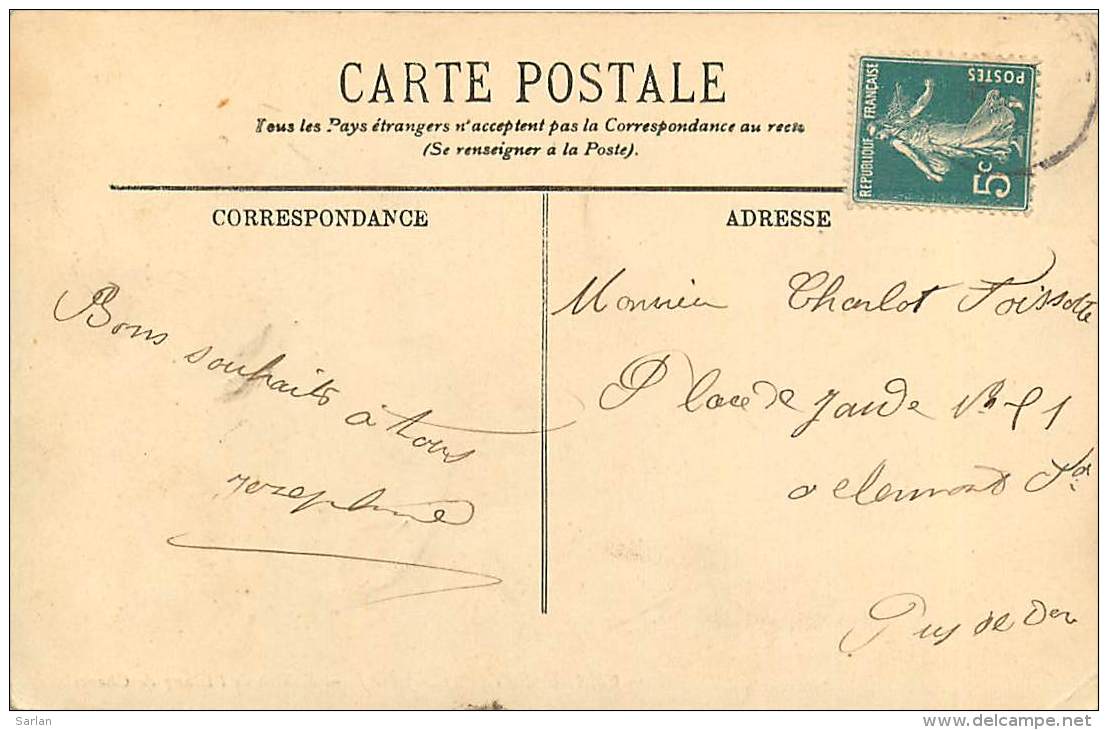 CARTE POSTALE
Tous les Pays étrangers n'acceptent pas la Correspondance au recto
(Se renseigner a la Poste).
REPUBLIQUE FRANÇAISE
POSTES
5c
CORRESPONDANCE
ADRESSE
Bons souhaits à tous
Josephine
Monsieur Charlot Foissotte
Place de Jaude
a clermont Fd
Puy de Dome
Sarlan
delcampe.net